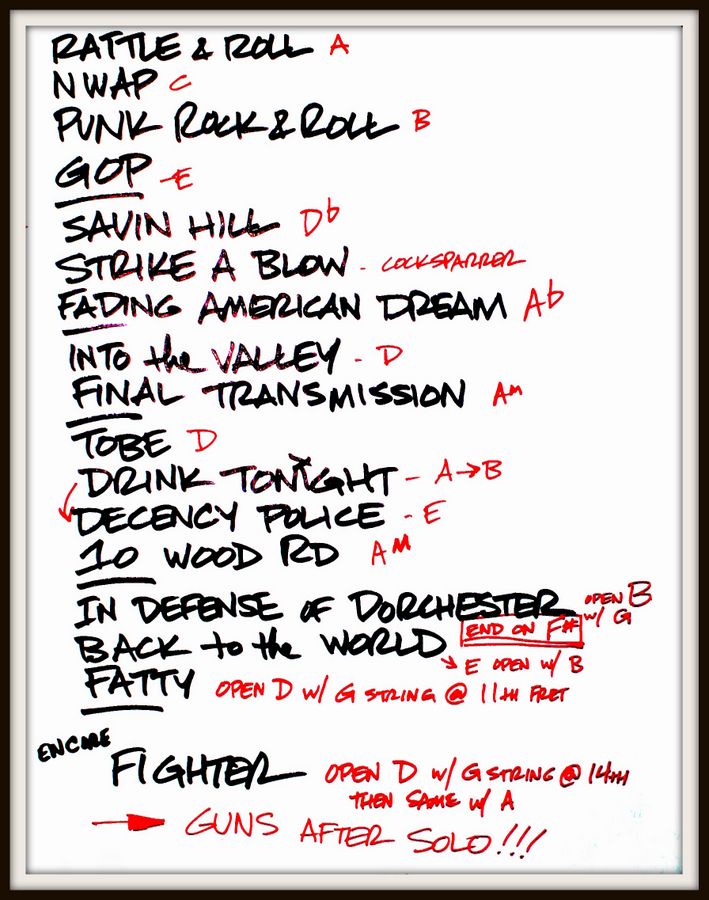 RATTLE & ROLL A
NWAP C
PUNK ROCK & ROLL B
GOP - E
SAVIN HILL Db
STRIKE A BLOW - COCKSPARRER
FADING AMERICAN DREAM Ab
INTO the VALLEY - D
FINAL TRANSMISSION AM
TOBE D
DRINK TONIGHT - A→B
DECENCY POLICE - E
10 WOOD RD AM
IN DEFENSE OF DORCHESTER OPEN B W/ G
END ON F#
BACK to the WORLD E OPEN W/ B
FATTY OPEN D W/ G STRING @ 11TH FRET
ENCORE
FIGHTER OPEN D W/ G STRING @ 14TH
THEN SAME W/ A
→ GUNS AFTER SOLO!!!